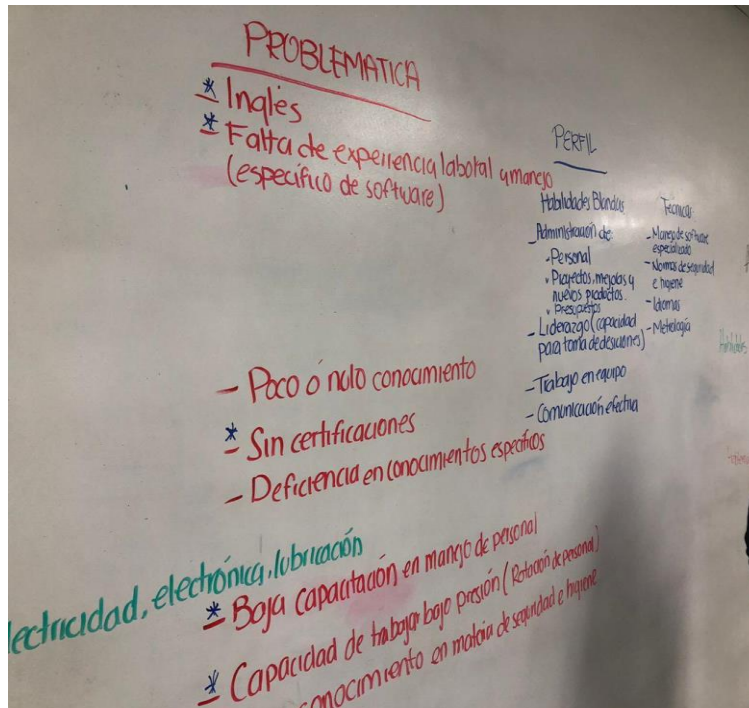 PROBLEMATICA
* Inglés
* Falta de experiencia laboral y manejo
(específico de software)
- Poco ó nulo conocimiento
* Sin certificaciones
- Deficiencia en conocimientos específicos
lectricidad, electrónica, lubricación
* Baja capacitación en manejo de personal
* Capacidad de trabajar bajo presión (Rotación de personal)
conocimiento en materia de seguridad e higiene
PERFIL
Habilidades Blandas
- Administración de:
- Personal
• Proyectos, mejoras y
nuevos productos.
• Presupuestos
- Liderazgo (capacidad
para toma de desiciones)
- Trabajo en equipo
- Comunicación efectiva
Técnicas
- Manejo de software
especializado
- Normas de seguridad
e higiene
- Idiomas
- Metrología